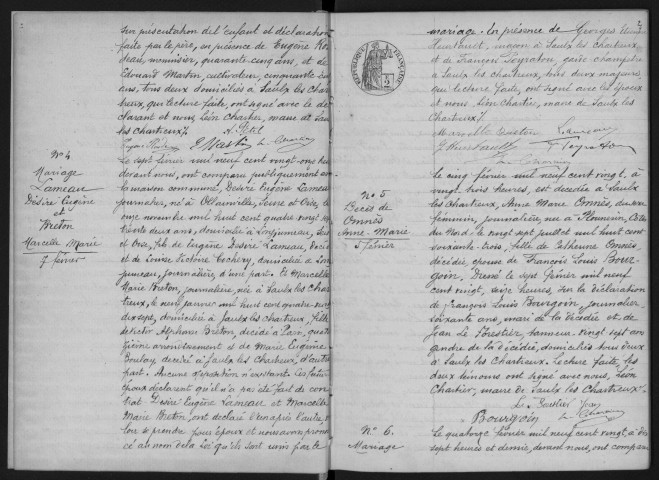 sur présentation de l'enfant et déclaration
faite par le père, en présence de Eugène
menuisier, quarante cinq ans, et de
Edouard Martin, cultivateur, cinquante
ans, tous domiciliés à Saulx les Char
treux, qui lecture faite, ont signé avec le dé
clarant et nous, Léon Chartier, maire de Saulx
les Chartreux /.
N° 4
Mariage
Lameau
Désiré Eugène
et
Breton
Marcelle Marie
7 février
Le sept février mil neuf cent vingt
devant nous, ont comparu publiquement en
la maison commune, Désiré Eugène Lameau
journalier, né à Ollainville, Seine et Oise, le
onze novembre mil huit cent quatre vingt
trente deux ans, domicilié à Longjumeau, Seine
et Oise, fils de Eugène Désiré Lameau, décédé
et de Louise Victoire Cochery, domiciliée à Long
jumeau, journalière, d'une part. Et Marcelle
Marie Breton, journalière, née à Saulx les Char
treux, le neuf janvier mil huit cent quatre vingt
dix sept, domiciliée à Saulx les Chartreux, fille
de Victor Alphonse Breton, décédé à Paris,
arrondissement et de Marie Eugénie
Boulay, décédée à Saulx les Chartreux, d'autre
part. Aucune opposition n'existant. Les futurs
époux déclarent qu'il n'a pas été fait de con
trat. Désiré Eugène Lameau et Marcelle
Marie Breton, ont déclaré l'un après l'autre
vouloir se prendre pour époux et nous avons pronon
cé au nom de la loi qu'ils sont unis par le
4
mariage. En présence de Georges
maçon à Saulx les Chartreux
et de François Peyraton, garde champêtre
à Saulx les Chartreux, tous deux majeurs,
qui lecture faite, ont signé avec les époux
et nous Léon Chartier, maire de Saulx les
Chartreux /.
Marcelle Breton Lameau
Peyraton
RÉPUBLIQUE FRANÇAISE
N° 5
Décès de
Omnès
Anne-Marie
5 février
Le cinq février mil neuf cent vingt, à
vingt trois heures, est décédée à Saulx
les Chartreux, Anne Marie Omnès, du sexe
féminin, journalière, née à Côtes
du Nord le vingt sept juillet mil huit cent
soixante trois, fille de Catherine Omnès,
décédée, épouse de François Louis Bour
goin. Dressé le sept février mil neuf
cent vingt, seize heures, sur la déclaration
de François Louis Bourgoin, journalier,
soixante ans, mari de la décédée et de
Jean Le Forestier, vingt sept ans
gendre de la décédée, domiciliés tous deux
à Saulx les Chartreux. Lecture faite, les
deux témoins ont signé avec nous, Léon
Chartier, maire de Saulx les Chartreux.
Le Forestier Jean
Bourgoin
N° 6.
Mariage
Le quatorze février mil neuf cent vingt, à dix
sept heures et demie, devant nous, ont comparu